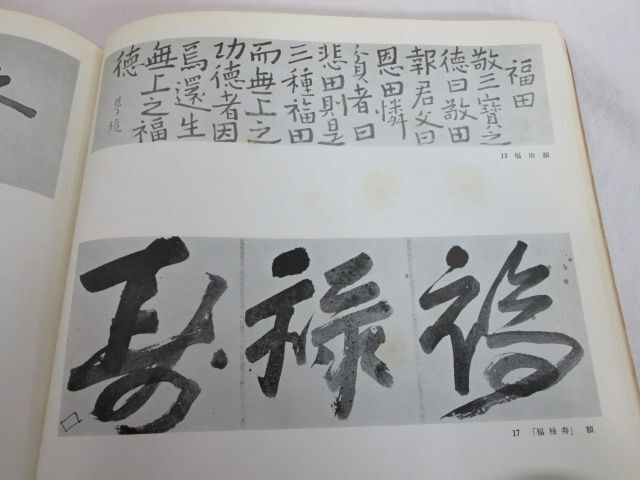 福田
敬三寶之
德曰敬田
報君父曰
恩田憐
貧者曰
悲田則是
三種福田
而無上之
功德者因
焉還生
無上之福
德
13 福田 額
福
禄
寿
17 「福禄寿」 額